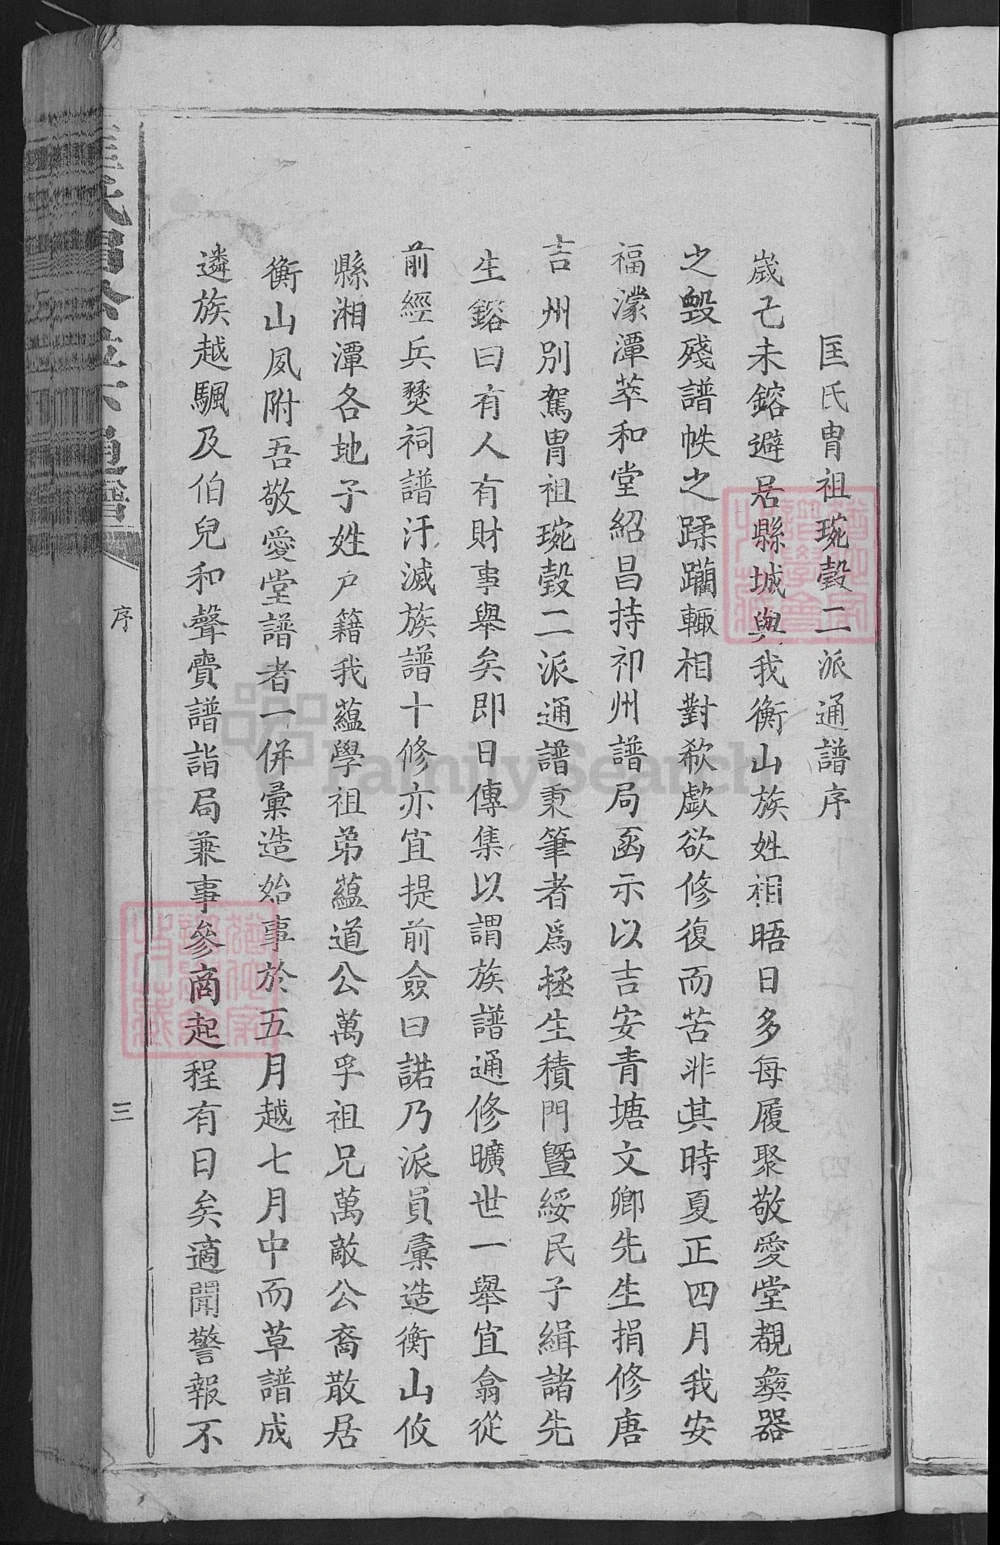 匡氏胄祖琬瑴二派通譜序
歲己未鎔避居縣城與我衡山族姓相晤日多每履聚敬愛堂覩彜器
之毀殘譜帙之蹂躪輒相對欷歔欲修復而苦非其時夏正四月我安
福濛潭萃和堂紹昌持祁州譜局函示以吉安青塘文卿先生捐修唐
吉州別駕胄祖琬瑴二派通譜秉筆者爲拯生積門曁綏民子緝諸先
生鎔曰有人有財事舉矣卽日傳集以謂族譜通修曠世一舉宜翕從
前經兵燹祠譜汙滅族譜十修亦宜提前僉曰諾乃派員彚造衡山攸
縣湘潭各地子姓戶籍我蘊學祖弟蘊道公萬孚祖兄萬敵公裔散居
衡山夙附吾敬愛堂譜者一併彙造始事於五月越七月中而草譜成
遴族越颿及伯兒和聲賫譜詣局兼事參商起程有日矣適聞警報不
序
三
FamilySearch